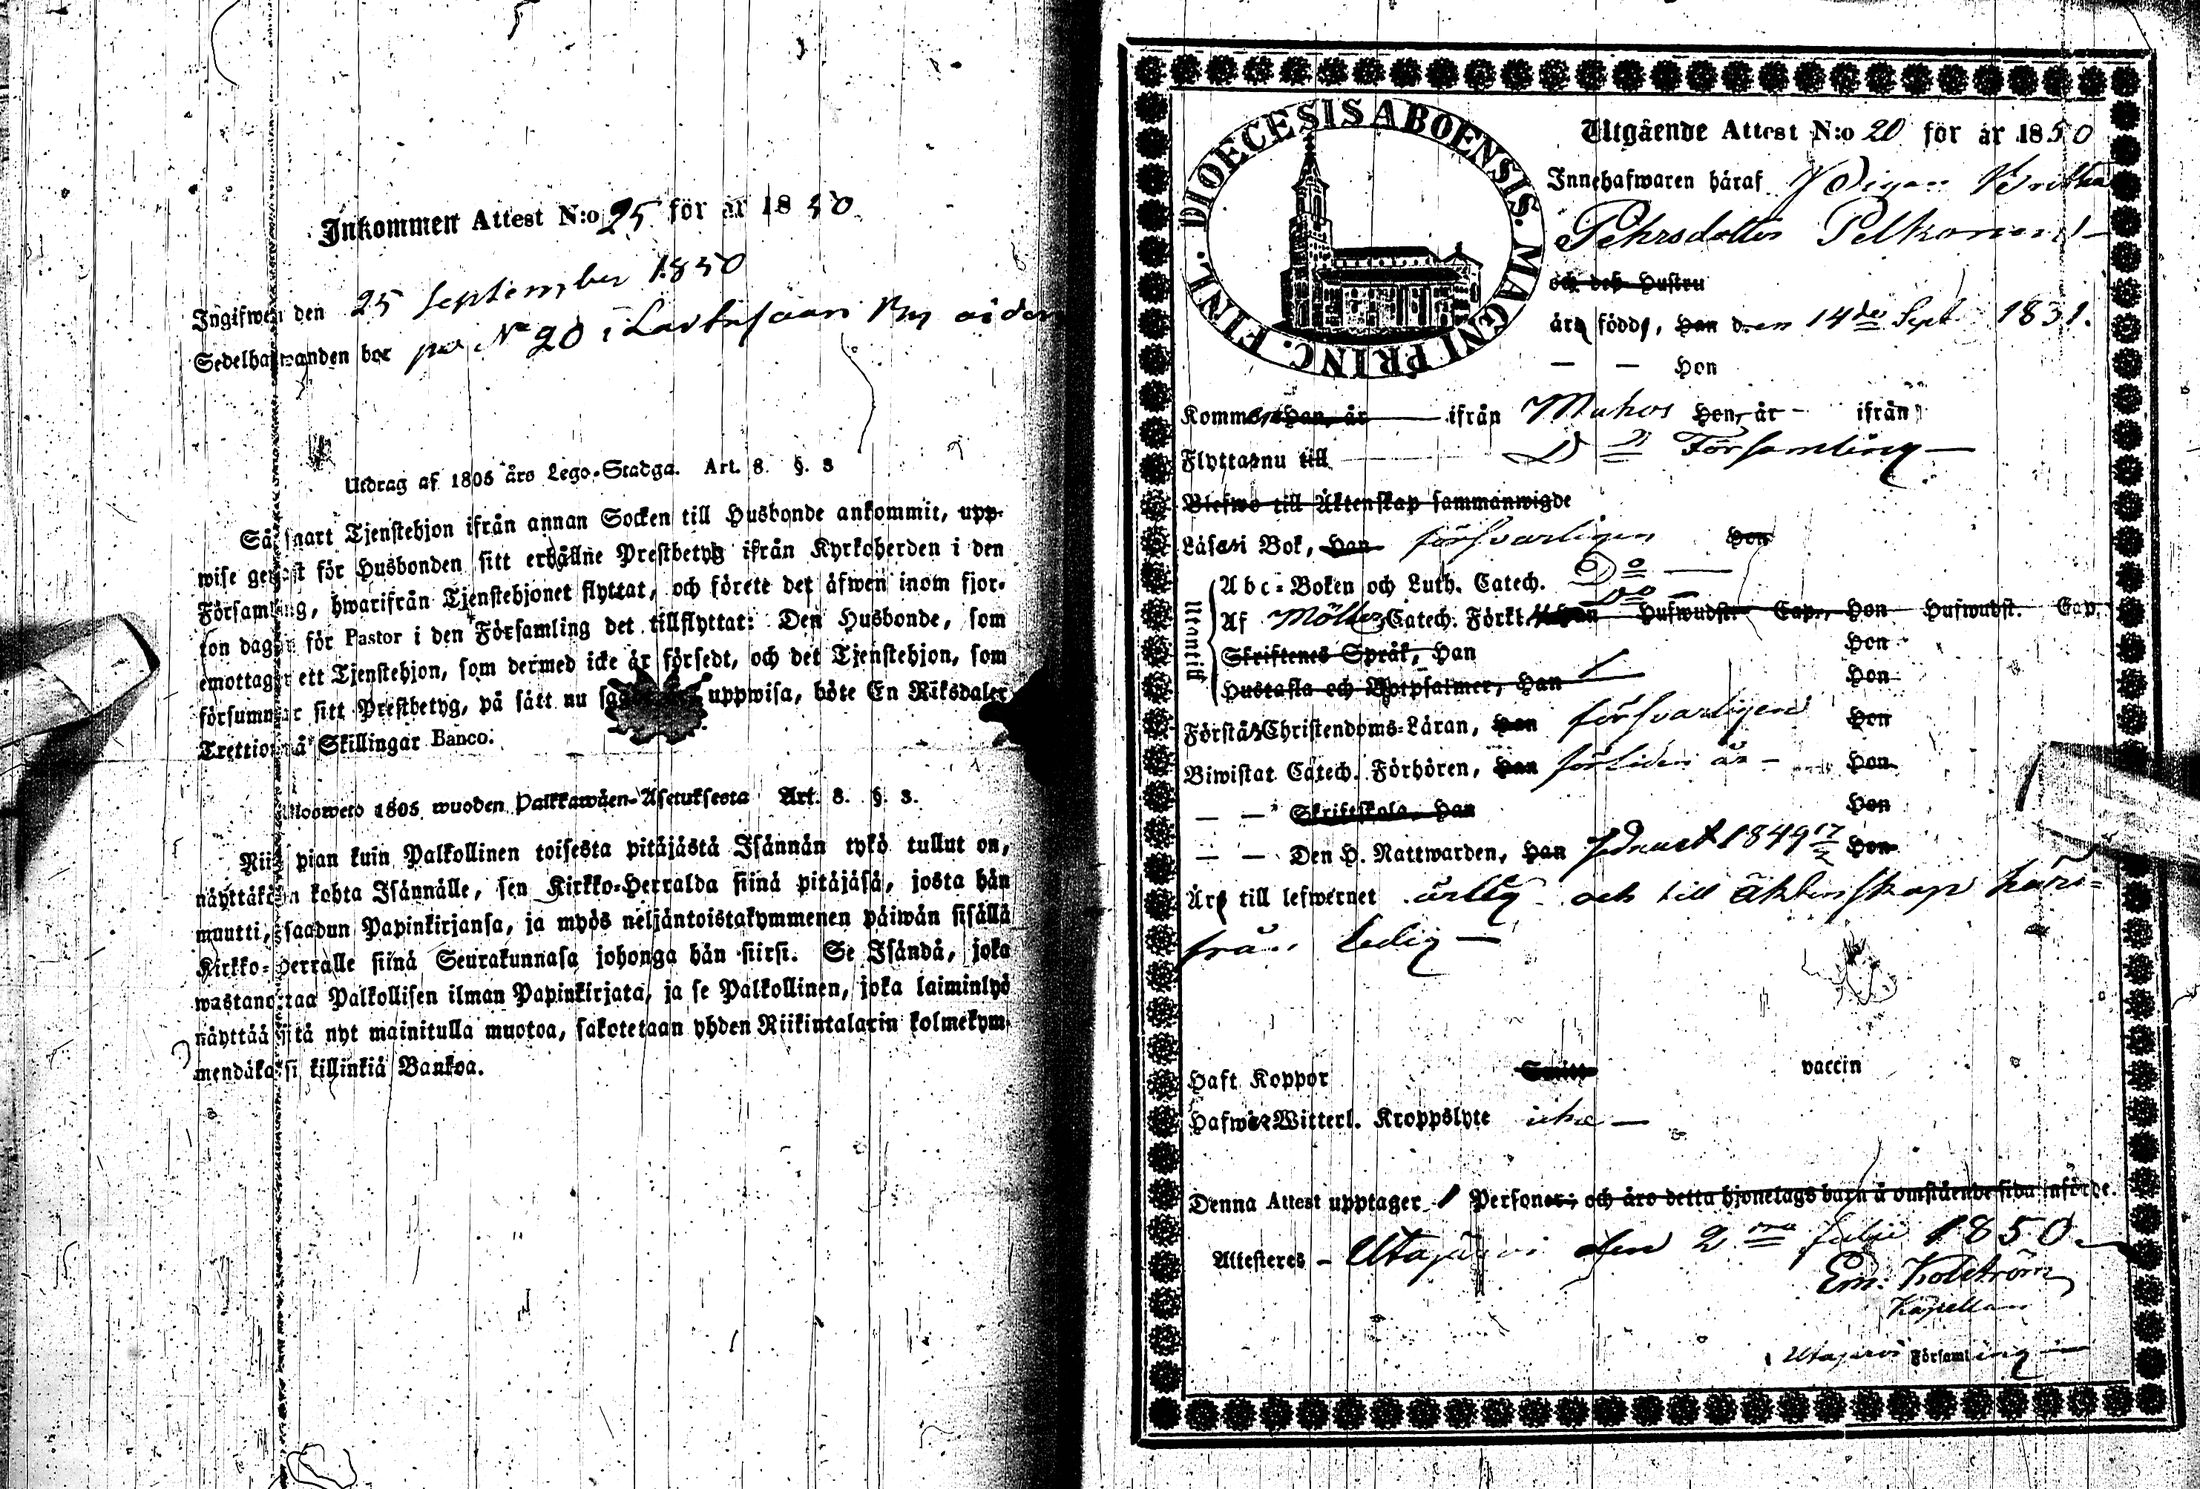 Inkommen Attest N:o 25 för år 1850
Ingifwen den 25 September 1850
Sedelhafwanden bor på No 20 i
Utdrag af 1805 års Lego-Stadga. Art. 8. §. 3
Så snart Tjenstehjon ifrån annan Socken till Husbonde ankommit, upp-
wise genast för Husbonden sitt erhållne Prestbetyg ifrån Kyrkoherden i den
Församling, hwarifrån Tjenstehjonet flyttat, och förete det äfwen inom fjor-
ton dagar för Pastor i den Församling det tillflyttat: Den Husbonde, som
emottager ett Tjenstehjon, som dermed icke är försedt, och det Tjenstehjon, som
försummar sitt Prestbetyg, på sätt nu uppwisa, böte En Riksdaler
Trettio Skillingar Banco.
Uloosweto 1805 wuoden Palkkawäen-Asetuksesta Art. 8. §. 3.
Niin pian kuin Palkollinen toisesta pitäjästä Isännän tykö tullut on,
näyttäkään kohta Isännälle, sen Kirkko-Herralda siinä pitäjäsä, josta hän
muutti, saadun Papinkirjansa, ja myös neljäntoistakymmenen päiwän sisällä
Kirkko-Herralle siinä Seurakunnasa johonga hän siirsi. Se Isändä, joka
wastanottaa Palkollisen ilman Papinkirjata, ja se Palkollinen, joka laiminlyö
näyttää sitä nyt mainitulla muotoa, sakotetaan yhden Riikintalarin kolmekym-
mendäkaksi killinkiä Bankoa.
DIOECESIS ABOENSIS. MAGNI PRINC. FINL.
Utgående Attest N:o 20 för år 1850
Innehafwaren häraf Pigan Britha
Pehrsdotter Pelkonen
och deß Hustru
äro födde, Han den 14de Sept 1831.
— — Hon
Kommo, Han, år ifrån Muhos Hon, år ifrån
Flytta nu till Do Församling
Blefwo till Äktenskap sammanwigde
Läsa i Bok, Han försvarligen Hon
Utantill
Abc-Boken och Luth. Catech. Do
Af Catech. Förkl. Han Hufwudst. Cap., Hon Hufwudst. Cap.
Skriftenes Språk, Han Hon
Hustafla och Botpsalmer, Han Hon
Förstå Christendoms-Läran, Han försvarligen Hon
Biwistat Catech. Förhören, Han förliden år Hon
— — Skriftskola, Han Hon
— — Den H. Nattwarden, Han 1849 17/2 Hon
Äro till lefwernet ärlig och till äktenskap häri-
från ledig
Haft Koppor vaccin
Hafwa Witterl. Kroppslyte icke
Denna Attest upptager 1 Personer; och äro detta hjonelags barn å omstående sida införde.
Attesteres Utajärvi den 2 Julii 1850
Em. Kolström
Kapellan
Utajärvi Församling